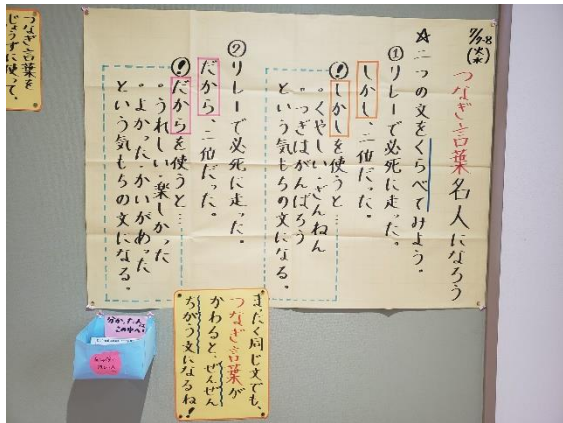 7/7-8
(火水)
つなぎ言葉名人になろう
☆二つの文をくらべてみよう。
①リレーで必死に走った。
しかし、二位だった。
!しかしを使うと…
。くやしい・ざんねん
。つぎはがんばろう
という気もちの文になる。
②リレーで必死に走った。
だから、二位だった。
!だからを使うと…
。うれしい・楽しかった
。よかった・かいがあった
という気もちの文になる。
つなぎ言葉を
じょうずに使って、
まったく同じ文でも、
つなぎ言葉が
かわると、ぜんぜん
ちがう文になるね!
分かった人は
この中へ!